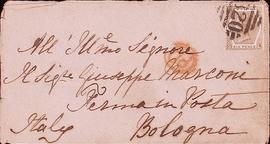 All' Illmo Signore
Il Sigr Giuseppe Marconi
Ferma in Posta
Italy Bologna
SIX PENCE